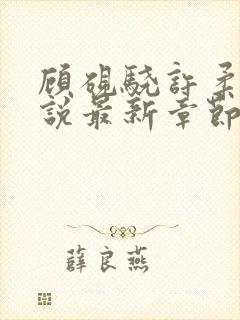 顾砚骁許柔
說最新章節
薛良燕